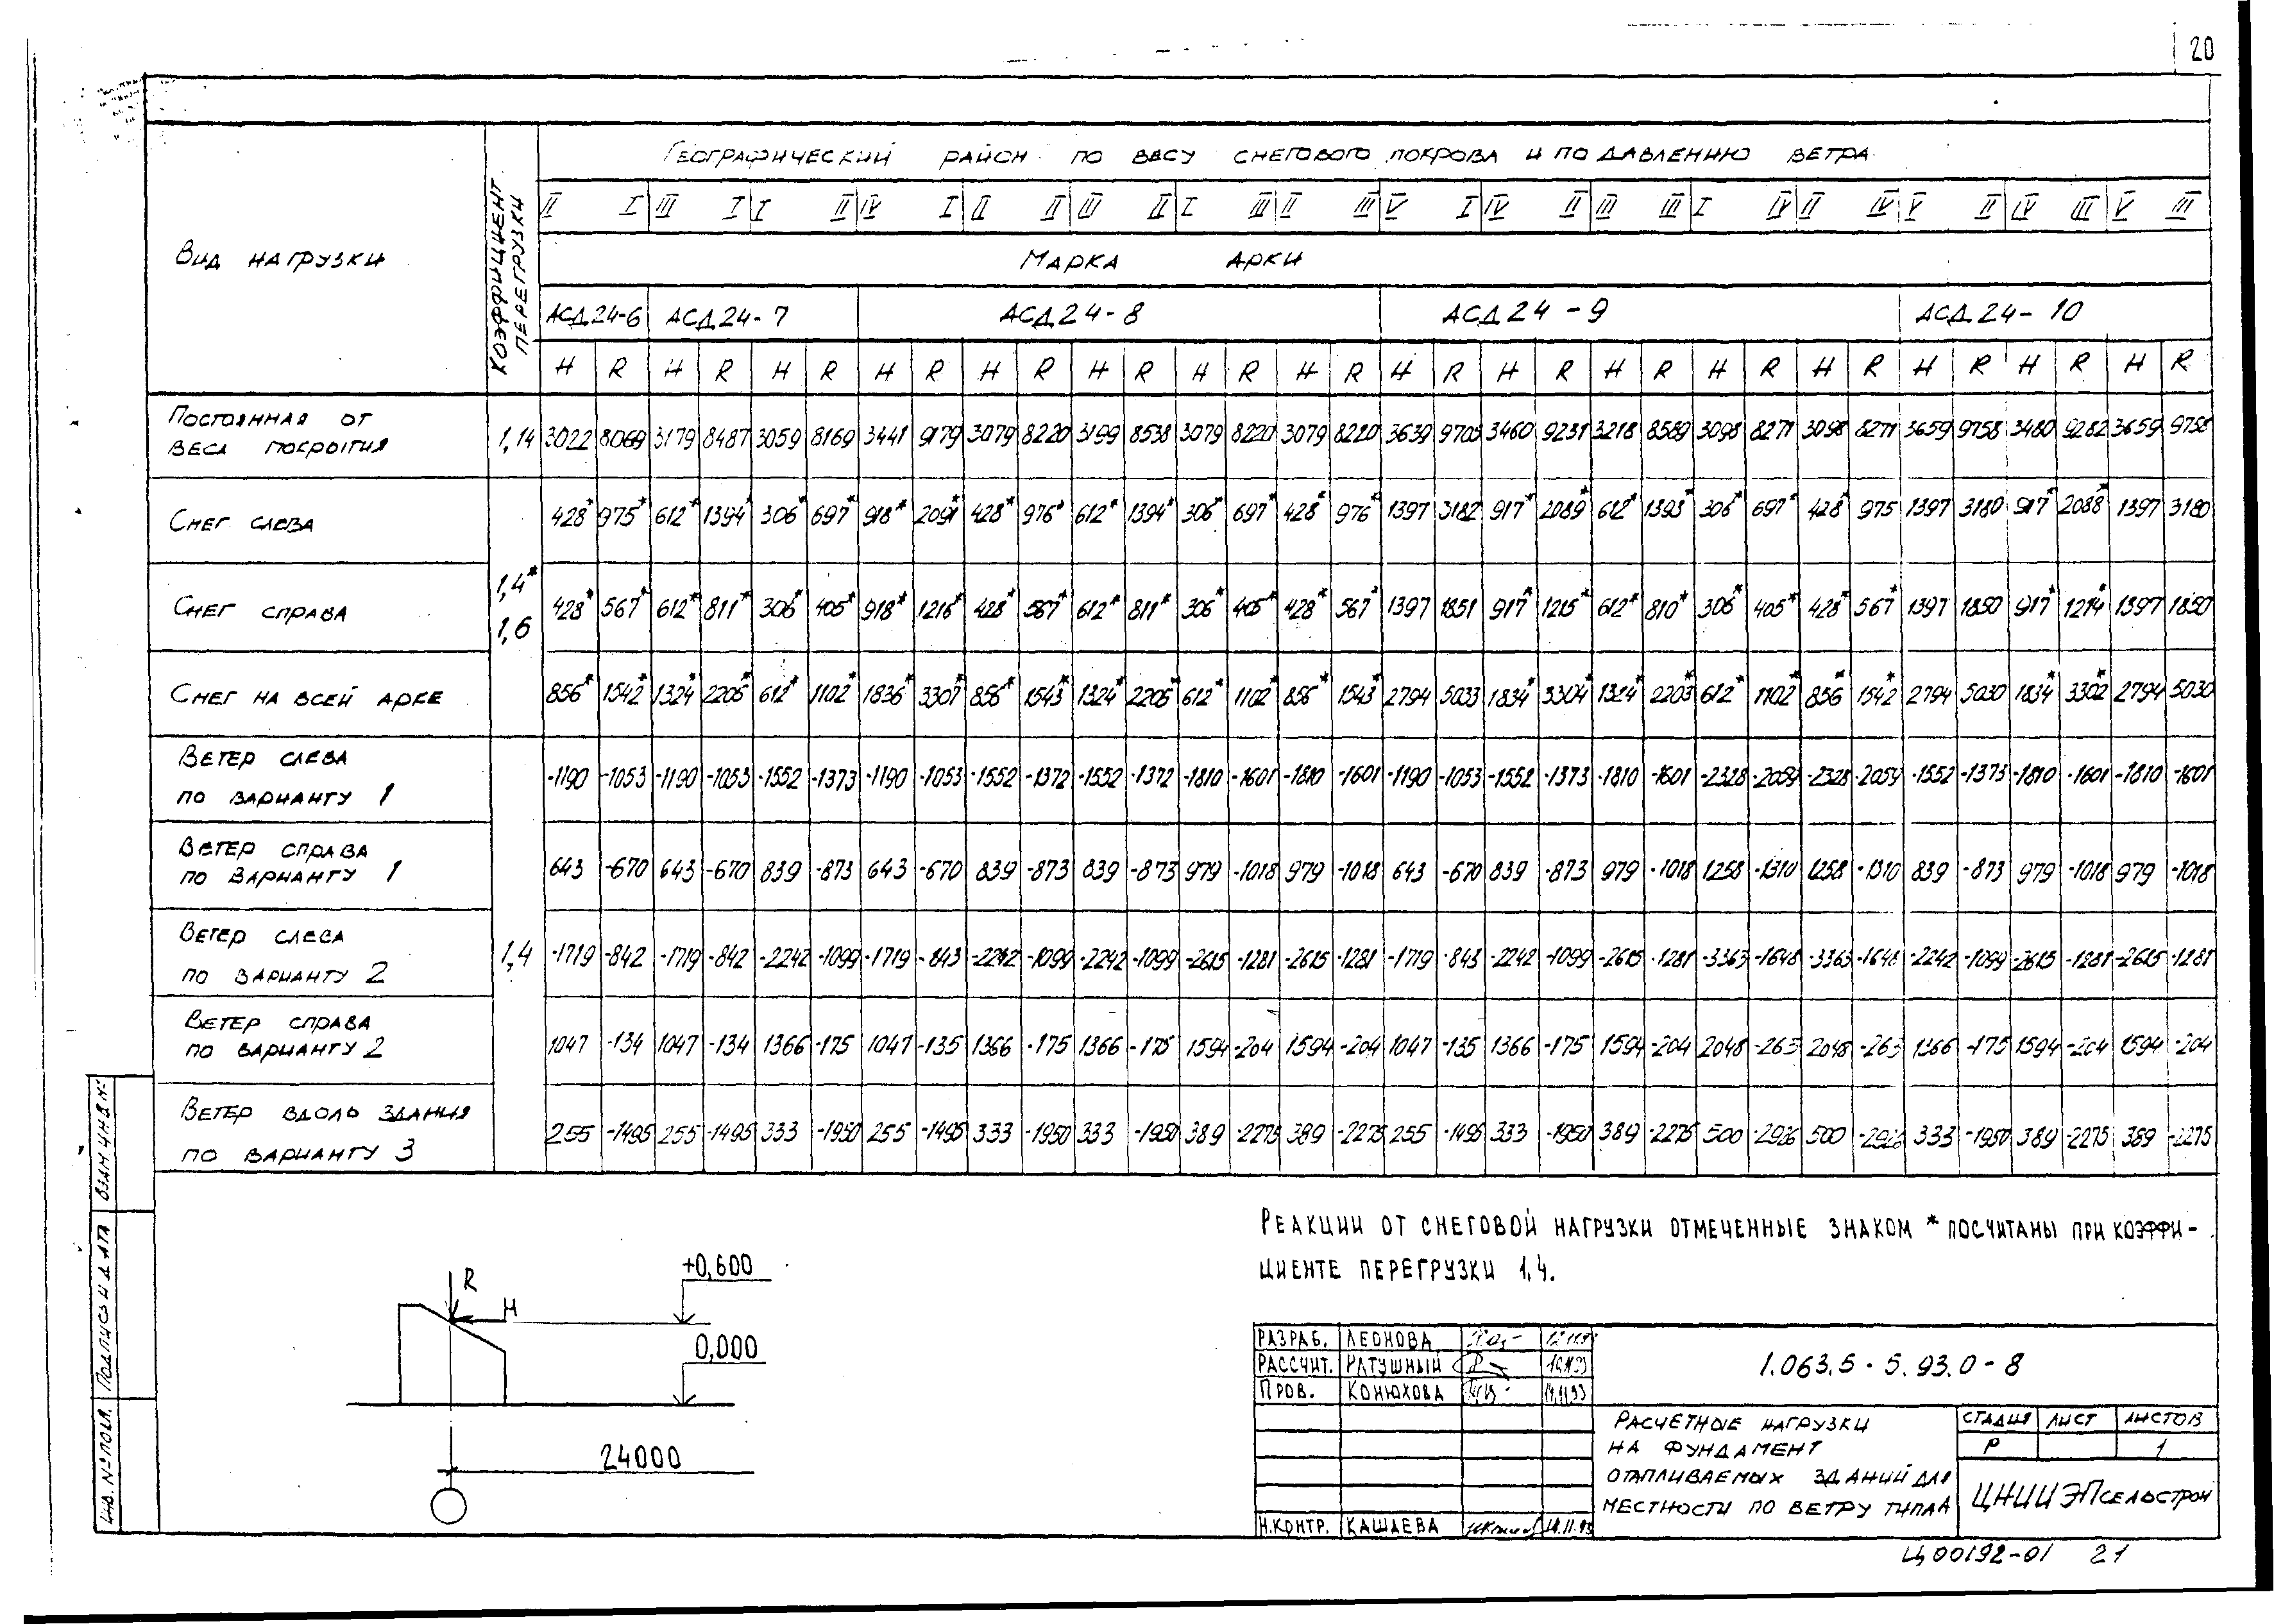 20
Географический район по весу снегового покрова и по давлению ветра
Вид нагрузки
Коэффициент перегрузки
II I III I I II IV I II II III II I III II III V I IV II III III I IV II IV V II IV III V III
Марка арки
АСД24-6 АСД24-7 АСД24-8 АСД24-9 АСД24-10
H R H R H R H R H R H R H R H R H R H R H R H R H R H R H R H R
Постоянная от
веса покрытия
1,14 3022 8069 3179 8487 3059 8169 3441 9179 3079 8220 3199 8538 3079 8220 3079 8220 3639 9703 3460 9231 3218 8589 3098 8271 3098 8271 3659 9758 3480 9282 3659 9758
Снег слева
428* 975* 612* 1394* 306* 697* 918* 2091* 428* 976* 612* 1394* 306* 697* 428* 976* 1397 3182 917* 2089* 612* 1393* 306* 697* 428* 975 1397 3180 917* 2088* 1397 3180
1,4*
1,6
Снег справа
428* 567* 612* 811* 306* 405* 918* 1216* 428* 567* 612* 811* 306* 405* 428* 567* 1397 1851 917* 1215* 612* 810* 306* 405* 428* 567* 1397 1850 917* 1214* 1397 1850
Снег на всей арке
856* 1542* 1324* 2205* 612* 1102* 1836* 3307* 856* 1543* 1324* 2205* 612* 1102* 856* 1543* 2794 5033 1834* 3304* 1324* 2203* 612* 1102* 856* 1542* 2794 5030 1834* 3302* 2794 5030
Ветер слева
по варианту 1
-1190 -1053 -1190 -1053 -1552 -1373 -1190 -1053 -1552 -1372 -1552 -1372 -1810 -1601 -1810 -1601 -1190 -1053 -1552 -1373 -1810 -1601 -2328 -2059 -2328 -2059 -1552 -1373 -1810 -1601 -1810 -1601
Ветер справа
по варианту 1
643 -670 643 -670 839 -873 643 -670 839 -873 839 -873 979 -1018 979 -1018 643 -670 839 -873 979 -1018 1258 -1310 1258 -1310 839 -873 979 -1018 979 -1018
Ветер слева
по варианту 2
1,4 -1719 -842 -1719 -842 -2242 -1099 -1719 -843 -2242 -1099 -2242 -1099 -2615 -1281 -2615 -1281 -1719 -843 -2242 -1099 -2615 -1281 -3363 -1648 -3363 -1648 -2242 -1099 -2615 -1281 -2615 -1281
Ветер справа
по варианту 2
1047 -134 1047 -134 1366 -175 1047 -135 1366 -175 1366 -175 1594 -204 1594 -204 1047 -135 1366 -175 1594 -204 2048 -263 2048 -263 1366 -175 1594 -204 1594 -204
Ветер вдоль здания
по варианту 3
255 -1495 255 -1495 333 -1950 255 -1495 333 -1950 333 -1950 389 -2275 389 -2275 255 -1495 333 -1950 389 -2275 500 -2926 500 -2926 333 -1950 389 -2275 389 -2275
Реакции от снеговой нагрузки отмеченные знаком * посчитаны при коэффи-
циенте перегрузки 1,4.
R
H
+0,600
0,000
24000
Разраб. Леонова
Рассчит. Ратушный
Пров. Конюхова 14.11.93
Н.контр. Кашаева
1.063.5-5.93.0-8
Расчетные нагрузки
на фундамент
отапливаемых зданий для
местности по ветру типа А
Стадия Лист Листов
Р 1
ЦНИИЭПсельстрой
Ц00192-01 21
Взам инв №
Подпись и дата
Инв. № подл.